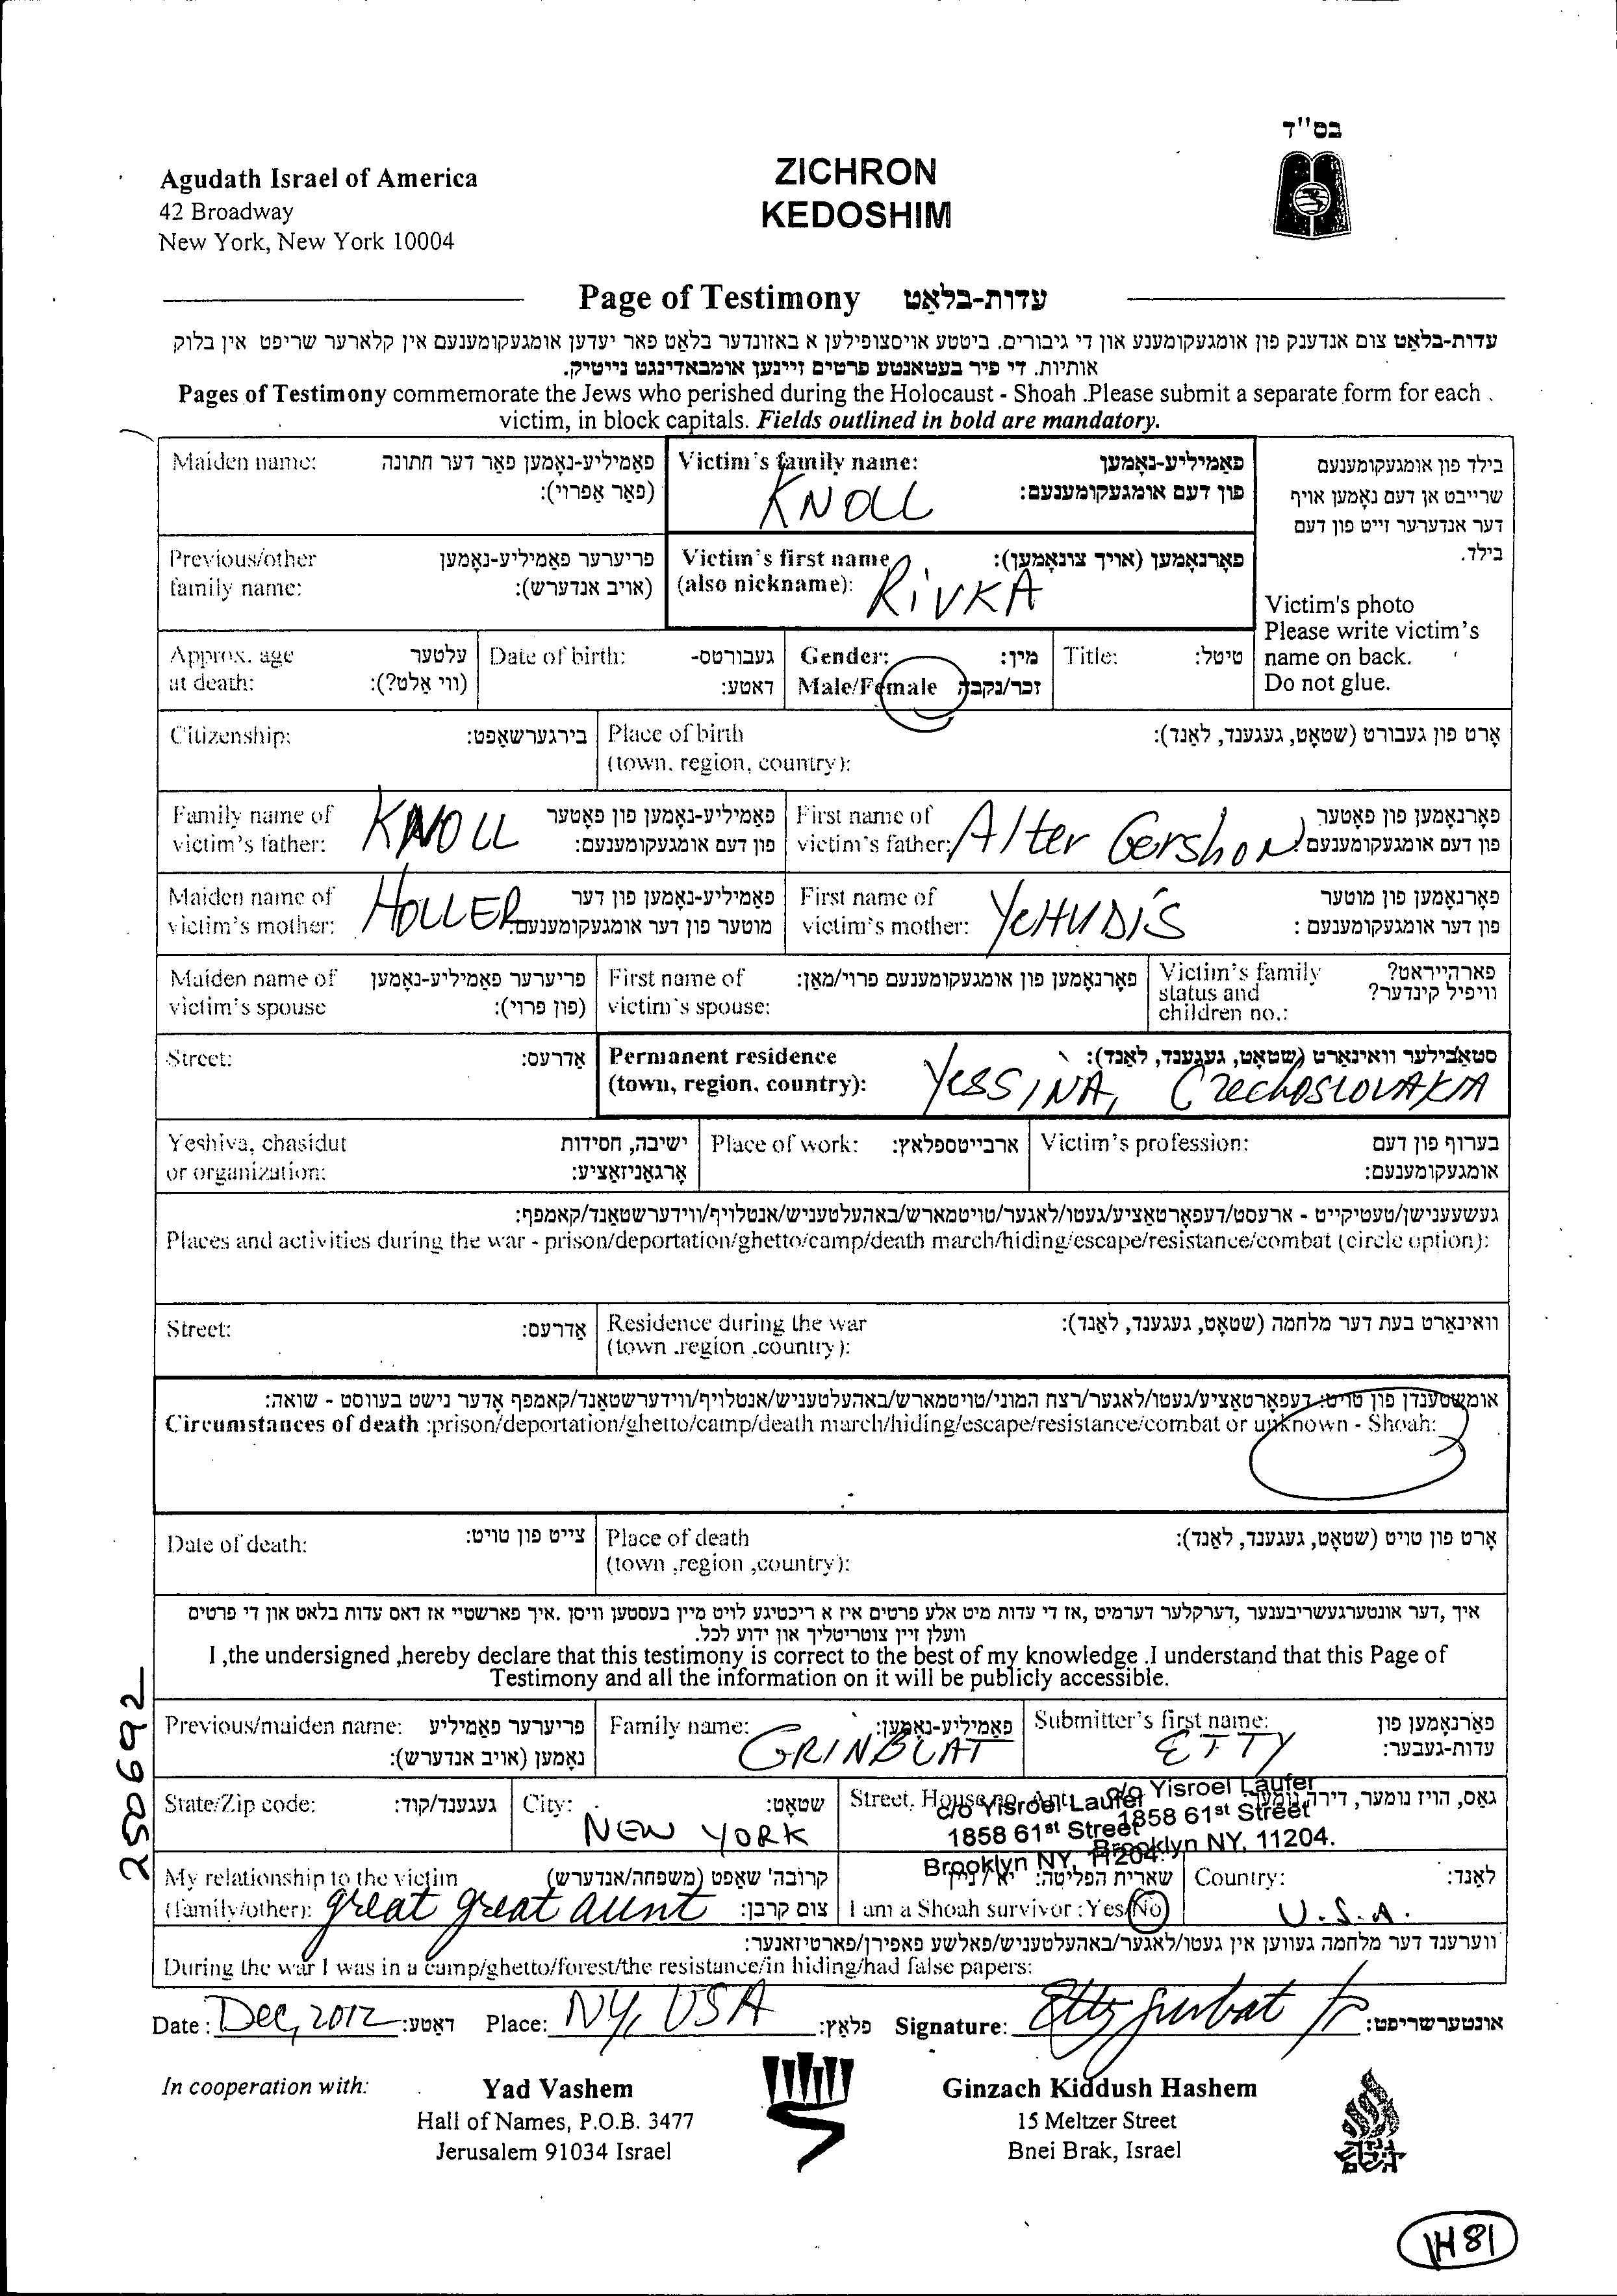 בס"ד
Agudath Israel of America
42 Broadway
New York, New York 10004
ZICHRON
KEDOSHIM
Page of Testimony עדות-בלאַט
עדות-בלאַט צום אנדענק פון אומגעקומענע און די גיבורים. ביטטע אויסצופילען א באזונדער בלאַט פאר יעדען אומגעקומענעם אין קלארער שריפט אין בלוק
אותיות. די פיר בעטאנטע פרטים זיינען אומבאדינגט נייטיק.
Pages of Testimony commemorate the Jews who perished during the Holocaust - Shoah .Please submit a separate form for each .
victim, in block capitals. Fields outlined in bold are mandatory.
Maiden name: פאַמיליע-נאָמען פאַר דער חתונה
(פאַר אַפרוי):
Victim's family name: פאַמיליע-נאָמען
פון דעם אומגעקומענעם:
KNOLL
בילד פון אומגעקומענעם
שרייבט אן דעם נאָמען אויף
דער אנדערער זייט פון דעם
בילד.
Previous/other פריערער פאַמיליע-נאָמען
family name: (אויב אנדערש):
Victim's first name פאָרנאָמען (אויך צונאָמען):
(also nickname): RiVKA
Victim's photo
Please write victim's
name on back.
Do not glue.
Approx. age עלטער
at death: (ווי אַלט?):
Date of birth: געבורטס-
דאַטע:
Gender: מין:
Male/Female זכר/נקבה
Title: טיטל:
Citizenship: בירגערשאַפט:
Place of birth אָרט פון געבורט (שטאָט, געגענד, לאַנד):
(town. region, country):
Family name of פאַמיליע-נאָמען פון פאָטער
victim's father: KNOLL פון דעם אומגעקומענעם:
First name of פאָרנאָמען פון פאָטער
victim's father: Alter Gershon פון דעם אומגעקומענעם:
Maiden name of פאַמיליע-נאָמען פון דער
victim's mother: HOLLER מוטער פון דער אומגעקומענעם:
First name of פאָרנאָמען פון מוטער
victim's mother: YeHUDiS פון דער אומגעקומענעם :
Maiden name of פריערער פאַמיליע-נאָמען
victim's spouse (פון פרוי):
First name of פאָרנאָמען פון אומגעקומענעם פרוי/מאַן:
victim's spouse:
Victim's family פארהייראט?
status and וויפיל קינדער?
children no.:
Street: אַדרעס:
Permanent residence סטאַבילער וואינאָרט (שטאָט, געגענד, לאַנד):
(town, region. country): YESSINA, CzechoSLOVAKIA
Yeshiva, chasidut ישיבה, חסידות
or organization: אָרגאַניזאַציע:
Place of work: ארבייטספלאץ:
Victim's profession: בערוף פון דעם
אומגעקומענעם:
געשעענישן/טעטיקייט - ארעסט/דעפאָרטאַציע/געטו/לאגער/טויטמארש/באהעלטעניש/אנטלויף/ווידערשטאַנד/קאמפף:
Places and activities during the war - prison/deportation/ghetto/camp/death march/hiding/escape/resistance/combat (circle option):
Street: אַדרעס:
Residence during the war וואינאָרט בעת דער מלחמה (שטאָט, געגענד, לאַנד):
(town .region .country):
אומשטענדן פון טויט: דעפאָרטאַציע/געטו/לאגער/רצח המוני/טויטמארש/באהעלטעניש/אנטלויף/ווידערשטאַנד/קאמפף אָדער נישט בעוווסט - שואה:
Circumstances of death :prison/deportation/ghetto/camp/death march/hiding/escape/resistance/combat or unknown - Shoah:
Date of death: צייט פון טויט:
Place of death אָרט פון טויט (שטאָט, געגענד, לאַנד):
(town ,region ,country):
איך ,דער אונטערגעשריבענער ,דערקלער דערמיט ,אז די עדות מיט אלע פרטים איז א ריכטיגע לויט מיין בעסטען וויסן .איך פארשטיי אז דאס עדות בלאט און די פרטים
וועלן זיין צוטריטליך און ידוע לכל.
I ,the undersigned ,hereby declare that this testimony is correct to the best of my knowledge .I understand that this Page of
Testimony and all the information on it will be publicly accessible.
250692
Previous/maiden name: פריערער פאַמיליע
נאָמען (אויב אנדערש):
Family name: פאַמיליע-נאָמען:
GRINBLAT
Submitter's first name: פאָרנאָמען פון
עדות-געבער:
ETTY
State/Zip code: געגענד/קוד:
City: שטאָט:
NEW YORK
Street, House no. Apt.: גאַס, הויז נומער, דירה נומער:
c/o Yisroel Laufer
1858 61st Street
Brooklyn NY, 11204.
c/o Yisroel Laufer
1858 61st Street
Brooklyn NY, 11204.
My relationship to the victim קרובה' שאַפט (משפחה/אנדערש)
(family/other): great great aunt צום קרבן:
שארית הפליטה: יא/ניין
I am a Shoah survivor : Yes/No
Country: לאַנד:
U.S.A.
ווערענד דער מלחמה געווען אין געטו/לאגער/באהעלטעניש/פאלשע פאפירן/פארטיזאנער:
During the war I was in a camp/ghetto/forest/the resistance/in hiding/had false papers:
Date : Dec, 2012 דאַטע: Place: NY, USA פלאַץ: Signature: אונטערשריפט:
In cooperation with:
Yad Vashem
Hall of Names, P.O.B. 3477
Jerusalem 91034 Israel
Ginzach Kiddush Hashem
15 Meltzer Street
Bnei Brak, Israel
1H81